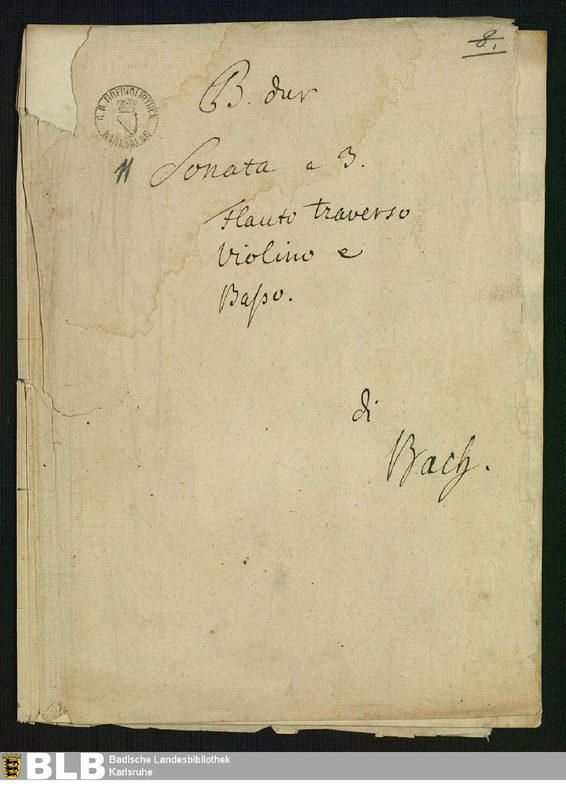 8.
B. dur
G. H. HOFBIBLIOTHEK
KARLSRUHE
11 Sonata a 3.
Flauto traverso
Violino e
Baſso.
di
Bach.
BLB Badische Landesbibliothek
Karlsruhe